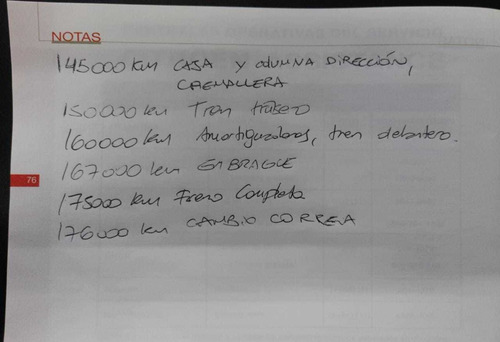 NOTAS
145000 km CASA Y COLUMNA DIRECCIÓN,
CREMALLERA
150000 km Tren trasero
160000 km Amortiguadores, tren delantero.
167000 km EMBRAGUE
76
175000 km Freno Completo
176000 km CAMBIO CORREA